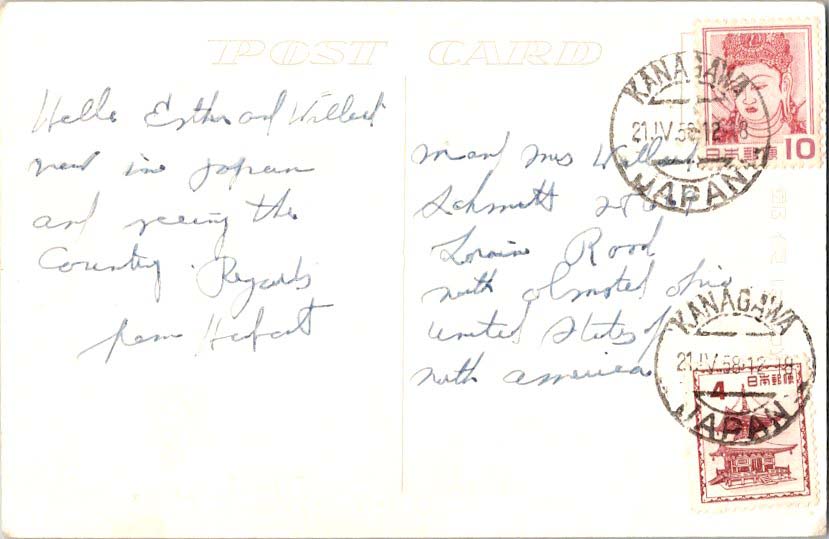 POST CARD
Hello Esther and Willard
now in Japan
and seeing the
Country. Regards
Herbert
Mr and Mrs Willard
Schmitt
Lorain Road
North Olmsted Ohio
United States of
North America
KANAGAWA
21.IV.58.12-18
JAPAN
日本郵便 10
KANAGAWA
21.IV.58.12-18
JAPAN
4 日本郵便